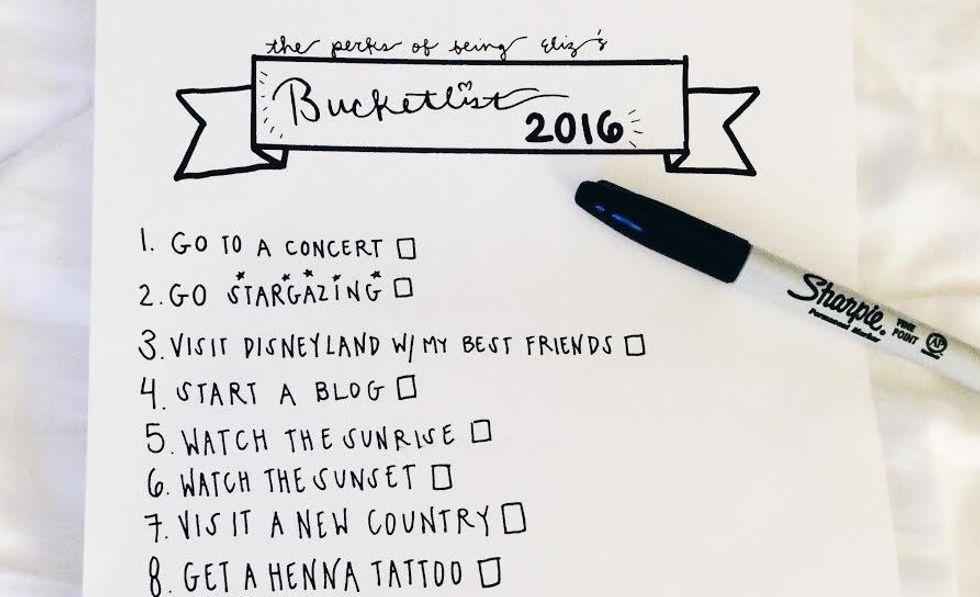 the perks of being eliz's
Bucketlist
2016
1. GO TO A CONCERT
2. GO STARGAZING
3. VISIT DISNEYLAND W/ MY BEST FRIENDS
4. START A BLOG
5. WATCH THE SUNRISE
6. WATCH THE SUNSET
7. VISIT A NEW COUNTRY
8. GET A HENNA TATTOO
Sharpie.
Permanent Marker
FINE
POINT
AP